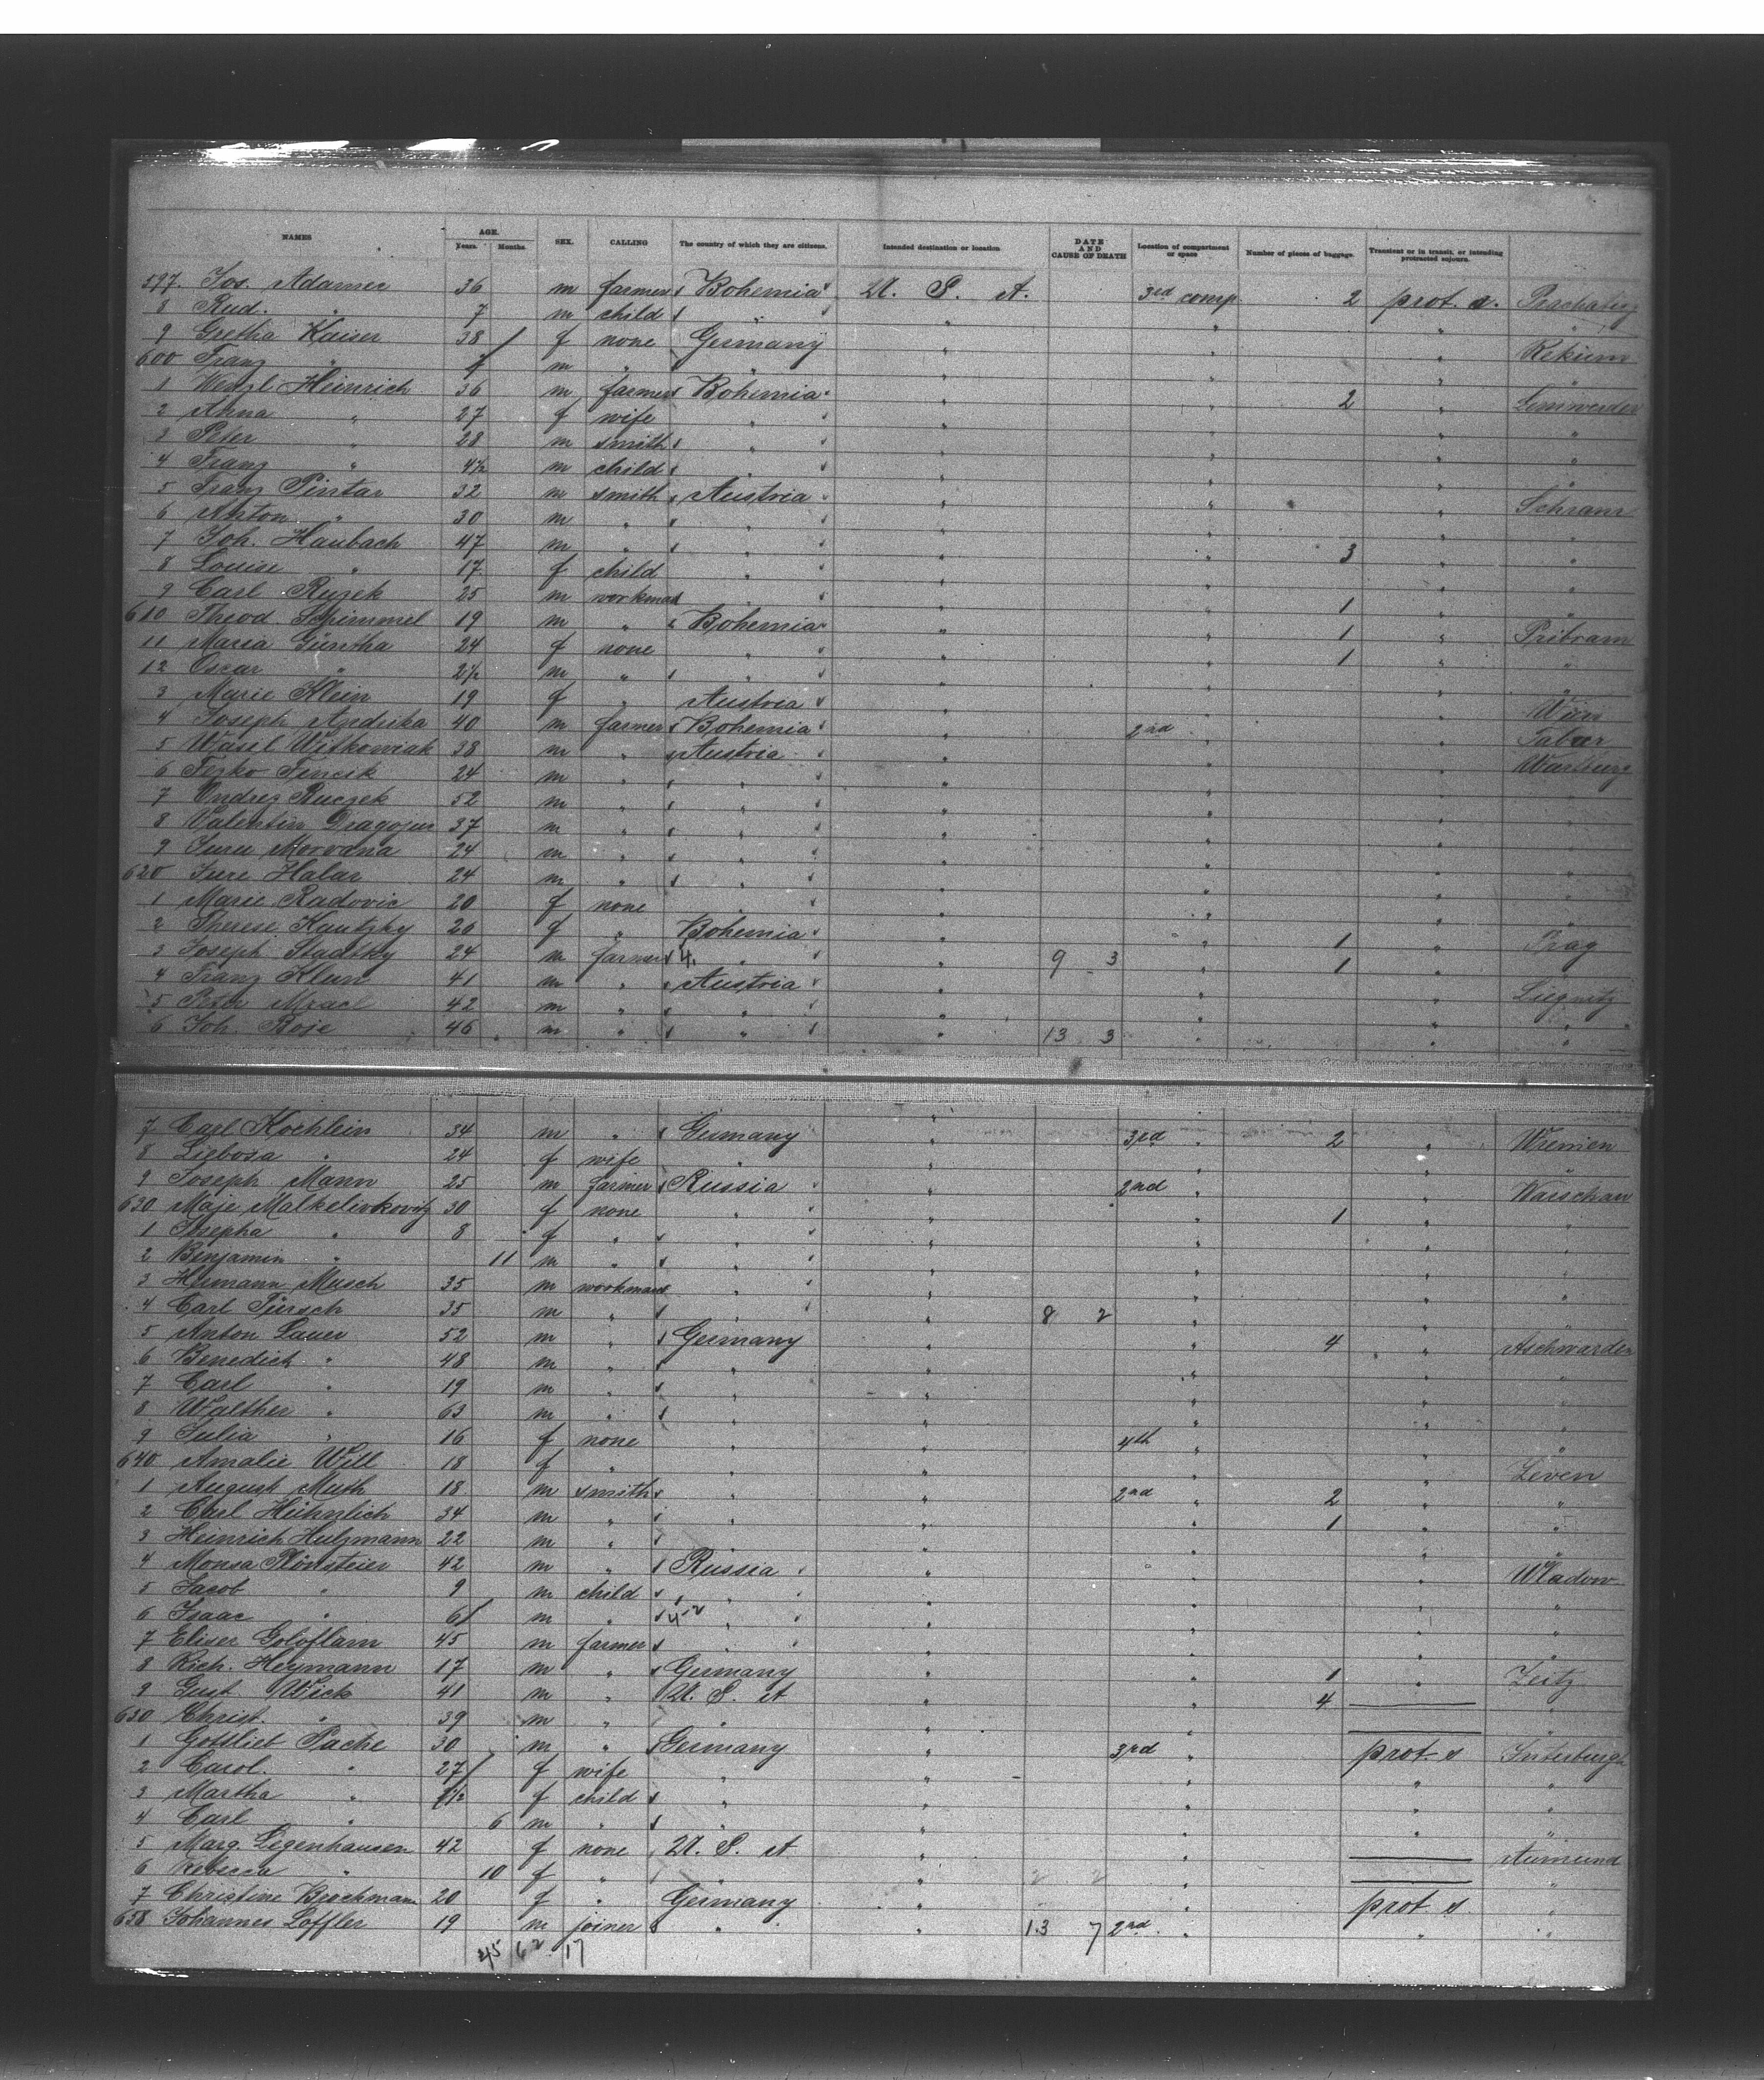 NAMES AGE. Years. Months. SEX. CALLING The country of which they are citizens. Intended destination or location DATE AND CAUSE OF DEATH Location of compartment or space Number of pieces of baggage. Transient or in transit, or intending protracted sojourn.
597. Jos. Adamec 36 m farmer Bohemia U. S. A. 3rd comp 2 prot. s. Prachatitz
8 Rud. " 7 m child " " "
9 Gretha Kaiser 38 f none Germany " " " Rekum
600 Franz " m " " " " " "
1 Wenzl Heinrich 36 m farmer Bohemia " " 2 "
2 Anna " 27 f wife " " " " "
3 Peter " 28 m smith " " " " "
4 Franz " 4½ m child " " " " "
5 Franz Pintar 32 m smith Austria " " " Schram
6 Anton " 30 m " " " " " "
7 Joh. Haubach 47 m " " " " 3 " "
8 Louise " 17 f child " " " " "
9 Carl Ruzek 25 m workman " " " 1 " "
610 Theod. Schimmel 19 m " Bohemia " " 1 " Pribram
11 Maria Güntha 24 f none " " " 1 " "
12 Oscar " 2½ m " " " " " "
3 Marie Klein 19 f " Austria " " " Wien
4 Joseph Andriska 40 m farmer Bohemia " 2nd " " Tabor
5 Wasel Witkowiak 38 m " Austria " " " Warburg
6 Fesko Fencik 24 m " " " " " "
7 Ondrez Ruczek 52 m " " " " " "
8 Valentin Dragojus 37 m " " " " " "
9 Jure Morvana 24 m " " " " " "
620 Jure Halar 24 m " " " " " "
1 Marie Radovic 20 f none " " " " "
2 Therese Kautzky 26 f " Bohemia " " 1 " Prag
3 Joseph Stadtky 24 m farmer 4. " " 9 3 " 1 " "
4 Franz Klun 41 m " Austria " " " Liegnitz
5 Peter Mracl 42 m " " " " " "
6 Joh. Roje 46 m " " " 13 3 " " "
7 Carl Kochlein 34 m " Germany " 3rd " 2 " Wremen
8 Liebosa " 24 f wife " " " " "
9 Joseph Mann 25 m farmer Russia " 2nd " " Warschau
630 Maje Malkelewkovitz 30 f none " " " 1 " "
1 Josepha " 8 f " " " " " "
2 Benjamin " 11 m " " " " " "
3 Hermann Musch 35 m workman " " " " "
4 Carl Türsch 35 m " " " 8 2 " " "
5 Anton Lauer 52 m " Germany " " 4 " Aschwarden
6 Benedich " 48 m " " " " " "
7 Carl " 19 m " " " " " "
8 Walther " 63 m " " " " " "
9 Julia " 16 f none " " 4th " " "
640 Amalie Will 18 f " " " " " Leven
1 August Muth 18 m smith " " 2nd " 2 " "
2 Carl 34 m " " " " 1 " "
3 Heinrich Hulzmann 22 m " " " " " "
4 Monsa 42 m " Russia " " " Wladow
5 Jacob " 9 m child " " " " "
6 Isaac " 6 m " 4-2 " " " " "
7 Eliser Goloflam 45 m farmer " " " " "
8 Rich. Heymann 17 m " Germany " " 1 " Zeitz
9 Gust. Wick 41 m " U. S. A " " 4 "
630 Christ. " 39 m " " " " "
1 Gottliet Pache 30 m " Germany " 3rd " prot. s Insterburgh
2 Carol. " 27 f wife " " " " "
3 Martha " 1½ f child " " " " "
4 Carl " 6 m " " " " " "
5 Marg. Legenhausen 42 f none U. S. A " " Aumund
6 Rebecca " 10 f " " " 2 2 " "
7 Christine Brockmann 20 f " Germany " " prot s "
658 Johannes Loffler 19 m joiner " " 13 7 2nd " " "
45 62 17